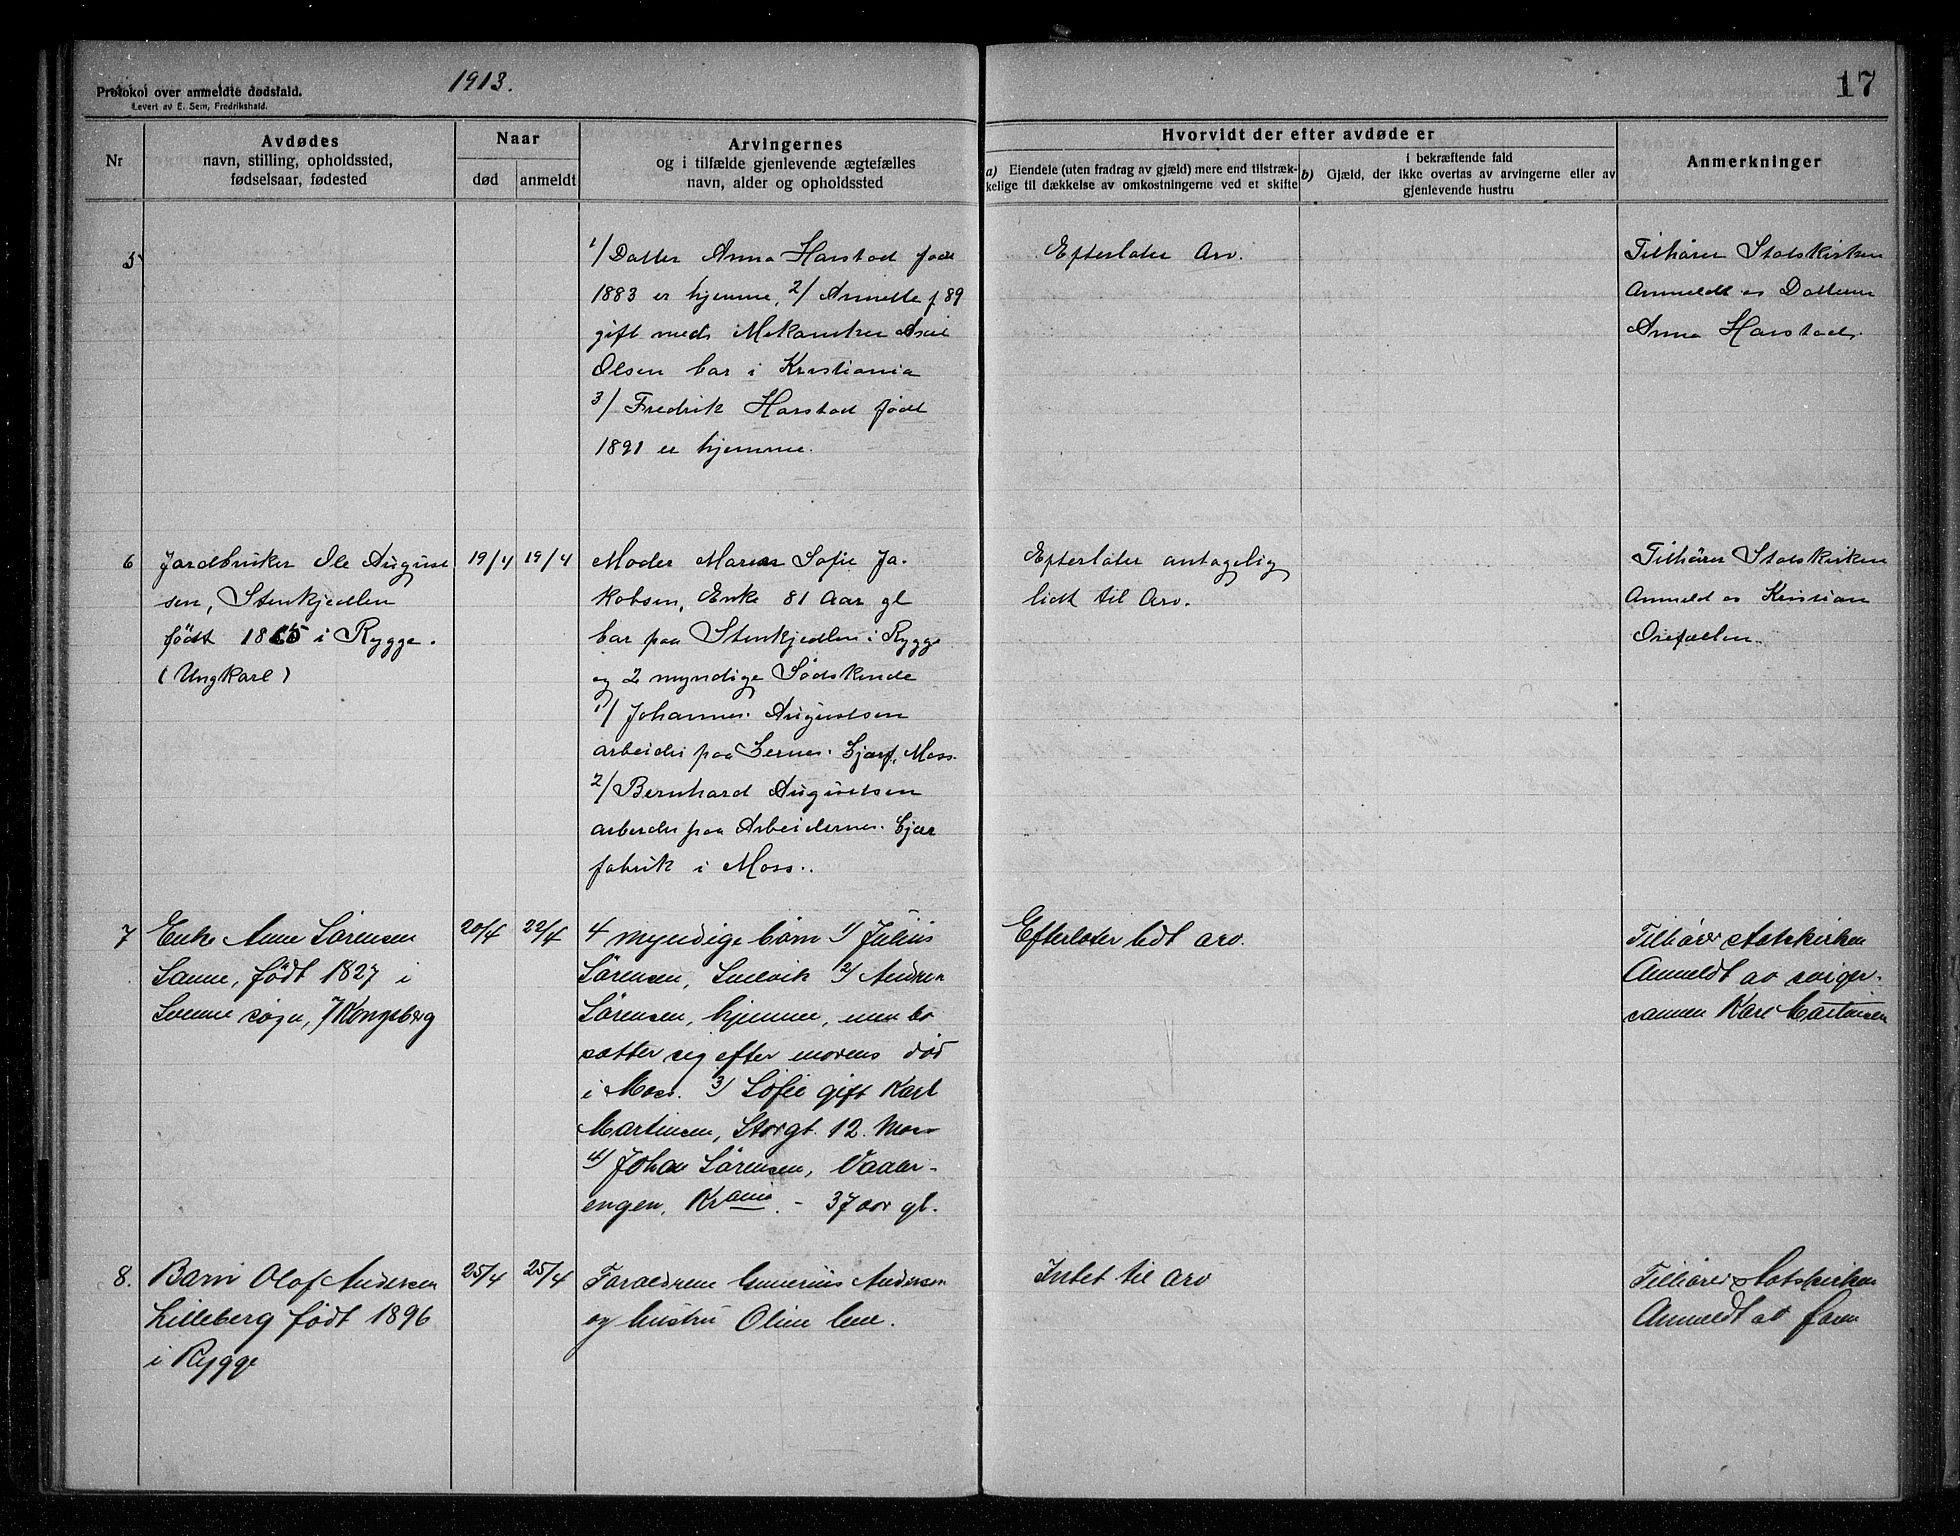 Protokol over anmeldte dødsfald.
Levert av E. Sem, Fredrikshald.
1913.
17
Nr
Avdødes
navn, stilling, opholdssted,
fødselsaar, fødested
Naar
død
anmeldt
Arvingernes
og i tilfælde gjenlevende ægtefælles
navn, alder og opholdssted
Hvorvidt der efter avdøde er
a) Eiendele (uten fradrag av gjæld) mere end tilstræk-
kelige til dækkelse av omkostningerne ved et skifte
i bekræftende fald
b) Gjæld, der ikke overtas av arvingerne eller av
gjenlevende hustru
Anmerkninger
5
1/ Datter Anna Harstad født
1883 er hjemme, 2/ Annette f 89
gift med Mekaniker
Olsen bor i Kristiania
3/ Fredrik Harstad født
1891 er hjemme.
Efterlater Arv.
Tilhører Statskirken
Anmeldt av Datteren
Anna Harstad.
6
Jordbruker Ole August
sen, Stenkjedlen
født 1865 i Rygge.
(Ungkarl)
19/4
19/4
Moder Maren Sofie Ja-
kobsen, Enke 81 Aar gl
bor paa Stenkjedlen i Rygge
og 2 myndige Sødskende
1/ Johannes Augustsen
arbeider paa Moss.
2/ Bernhard Augustsen
arbeider paa Arbeidernes
fabrik i Moss.
Efterlater antagelig
lidt til Arv.
Tilhører Statskirken
Anmeldt av Kristian
Orefaldlen.
7
Enke Anne Sørensen
Sanne, født 1827 i
sogn, Kongsberg
20/4
22/4
4 myndige børn 1/ Julius
Sørensen, Svelvik 2/ Andrea
Sørensen, hjemme, men bo
sætter sig efter morens død
i Moss. 3/ Sofie gift Karl
Martinsen, Storgt. 12. Moss
4/ Johan Sørensen, Vaaler-
engen, Kr.ania. - 37 aar gl.
Efterlater lidt arv.
Tilhører Statskirken
Anmeldt av sviger-
sønnen Karl Martinsen
8.
Barn Olaf Andersen
Lilleberg født 1896
i Rygge
25/4
25/4
Forældrene Gunerius Andersen
og hustru Oline
Intet til arv
Tilhører Statskirken
Anmeldt av faren